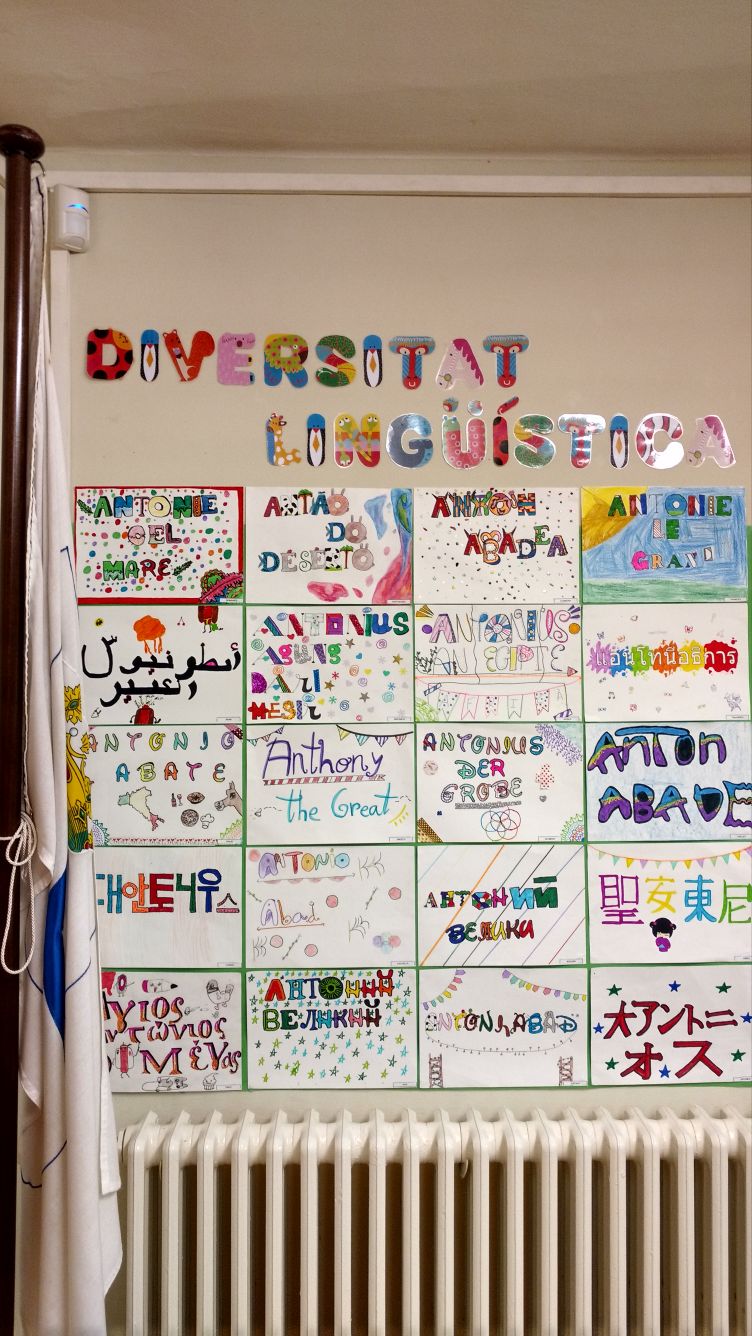 DIVERSITAT
LINGÜÍSTICA
ANTONIE
CEL
MARE
ANTÃO
DO
DESERTO
ANTON
ABADEA
ANTONIE
LE
GRAND
أنطونيوس
الكبير
ANTONIUS
AGUNG
DARI
MESIR
ANTONIUS
VAN EGIPTE
แอนโทนีอธิการ
ANTONIO
ABATE
Anthony
the Great
ANTONIUS
DER
GROßE
ANTON
ABADE
대안토니우스
ANTONIO
Abad
АНТОНИЙ
ВЕЛИКИ
聖安東尼
Άγιος
Αντώνιος
ο Μέγας
АНТОНИЙ
ВЕЛИКИЙ
ANTONI ABAD
大アントニ
オス